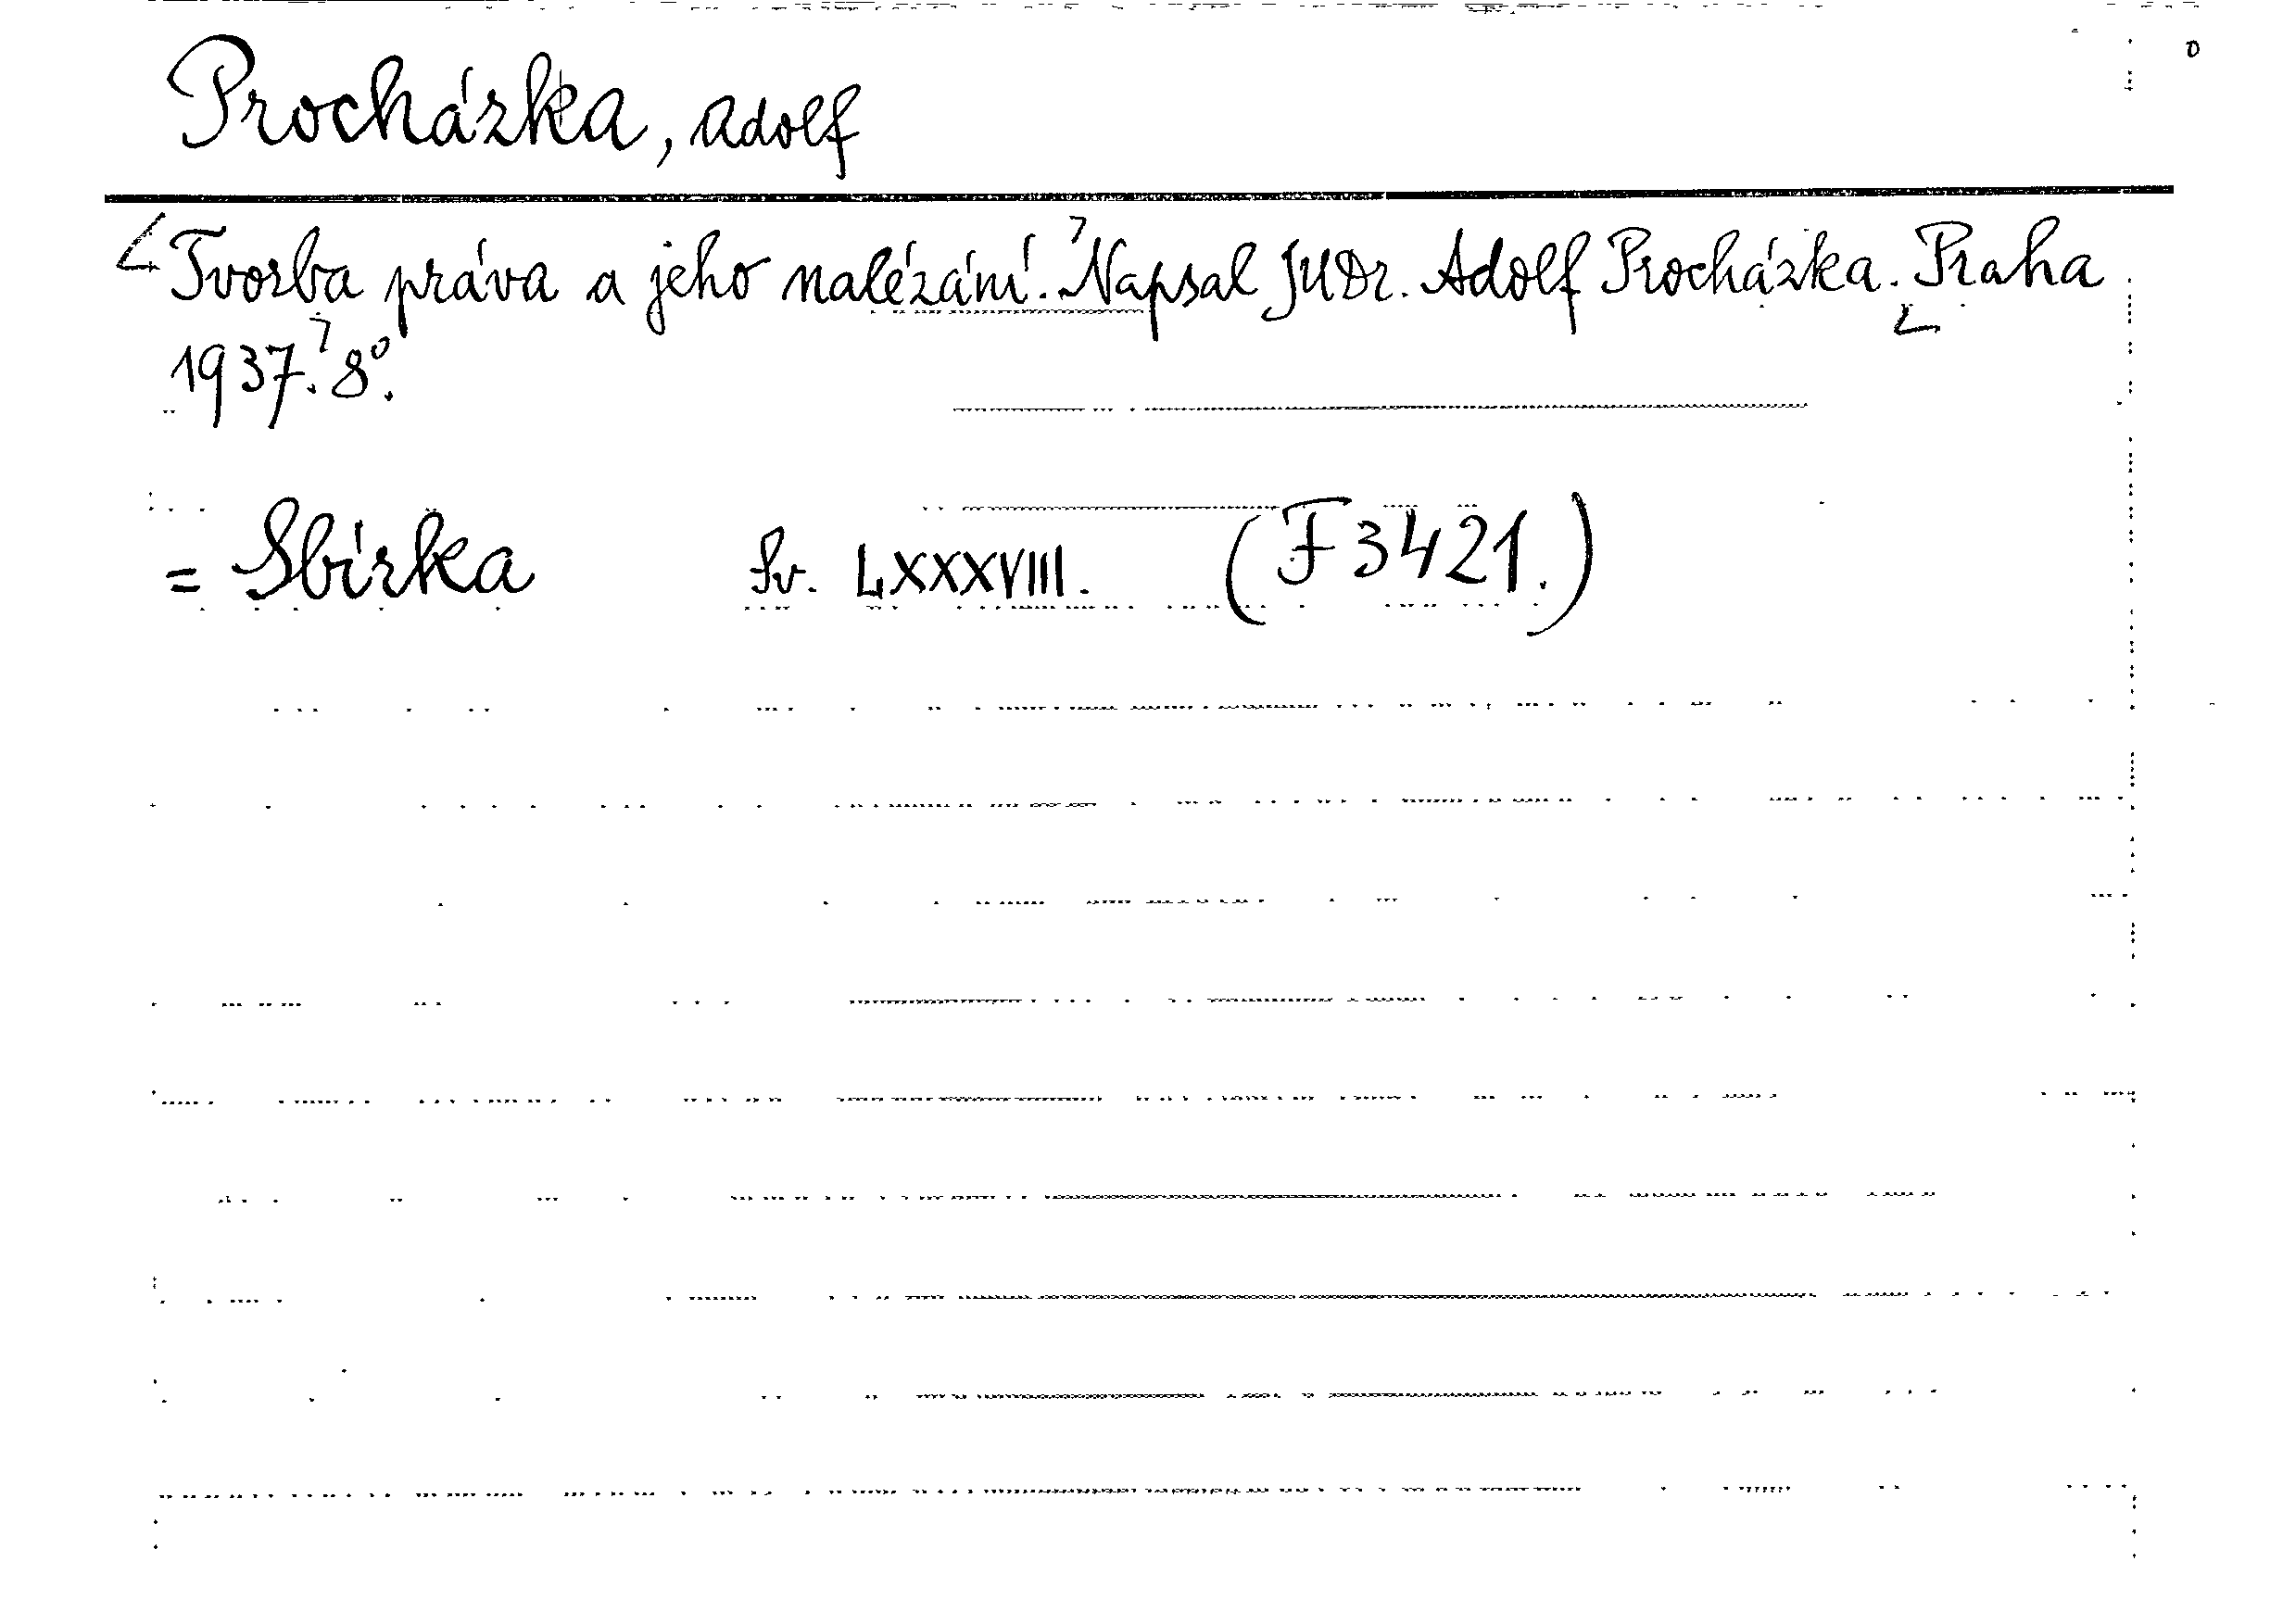 Procházka, Adolf
Tvorba práva a jeho nalézání. Napsal JUDr. Adolf Procházka. Praha
1937. 8°.
= Sbírka Sv. LXXXVIII. (F 3421.)